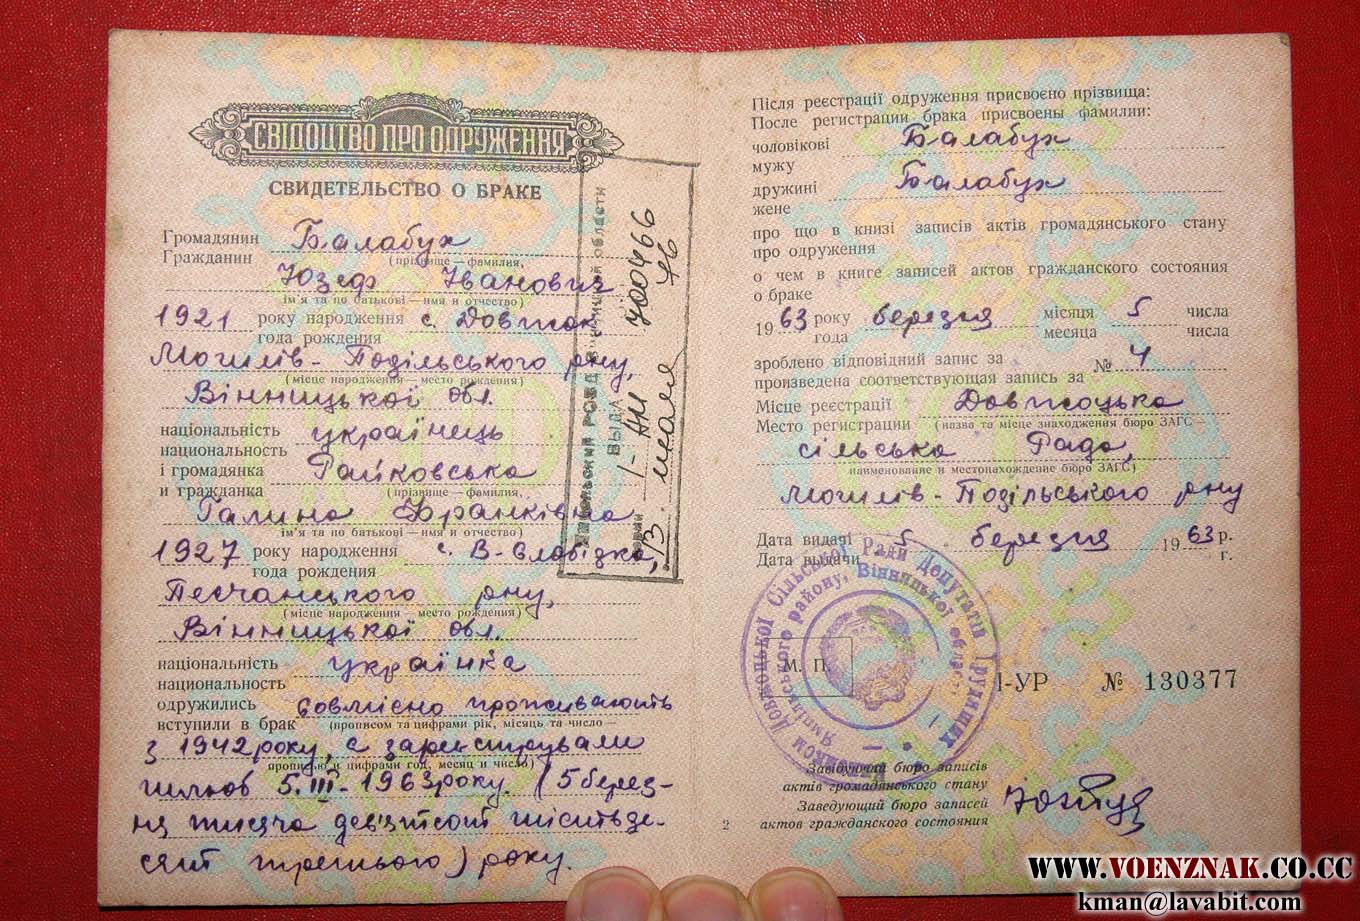 СВІДОЦТВО ПРО ОДРУЖЕННЯ
СВИДЕТЕЛЬСТВО О БРАКЕ
Громадянин Балабух
Гражданин (прізвище — фамилия,
Юзеф Іванович
ім'я та по батькові — имя и отчество)
1921 року народження с. Довжок
года рождения
Могилів-Подільського р-ну,
(місце народження — место рождения)
Вінницької обл.
національність українець
национальность
і громадянка Гайковська
и гражданка (прізвище — фамилия,
Галина Франківна
ім'я та по батькові — имя и отчество)
1927 року народження с. В-Слобідка,
года рождения
Песчанського р-ну,
(місце народження — место рождения)
Вінницької обл.
національність українка
национальность
одружились совмісно проживають
вступили в брак (прописом та цифрами рік, місяць та число —
з 1942 року, а зареєстрували
прописью и цифрами год, месяц и число)
шлюб 5.III-1963 року. (5 берез-
ня тисяча дев'ятсот шістьде-
сят третього) року.
ВЫДА
1-АМ 700466
13 июля 76
Після реєстрації одруження присвоєно прізвища:
После регистрации брака присвоены фамилии:
чоловікові Балабух
мужу
дружині Балабух
жене
про що в книзі записів актів громадянського стану
про одруження
о чем в книге записей актов гражданского состояния
о браке
1963 року березня місяця 5 числа
года месяца числа
зроблено відповідний запис за № 4
произведена соответствующая запись за
Місце реєстрації Довжоцька
Место регистрации (назва та місце знаходження бюро ЗАГС —
сільська Рада,
наименование и местонахождение бюро ЗАГС)
Могилів-Подільського р-ну
Дата видачі 5 березня 1963 р.
Дата выдачи г.
Виконком Довжоцької Сільської Ради Депутатів Трудящих
Ямпільського району, Вінницької області
М. П.
I-УР № 130377
Завідуючий бюро записів
актів громадянського стану
Заведующий бюро записей
актов гражданского состояния
2
WWW.VOENZNAK.CO.CC
kman@lavabit.com